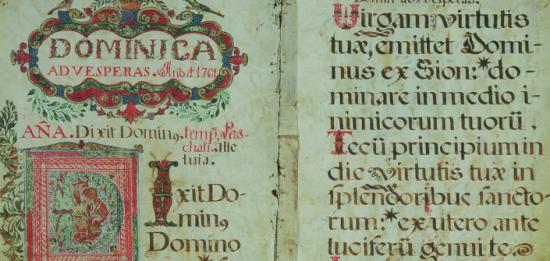 DOMINICA
AD VESPERAS. Año d 1761
AÑA. Dixit Domin9 temp. Pas
chali. alle
luia.
Dixit Do-
min9
Domino
Virgam virtutis
tuæ, emittet Domi-
nus ex Sion: * do-
minare in medio i-
nimicorum tuorũ.
Tecũ principium in
die virtutis tuæ in
splendoribus sancto-
rum: * ex utero ante
luciferũ genui te.